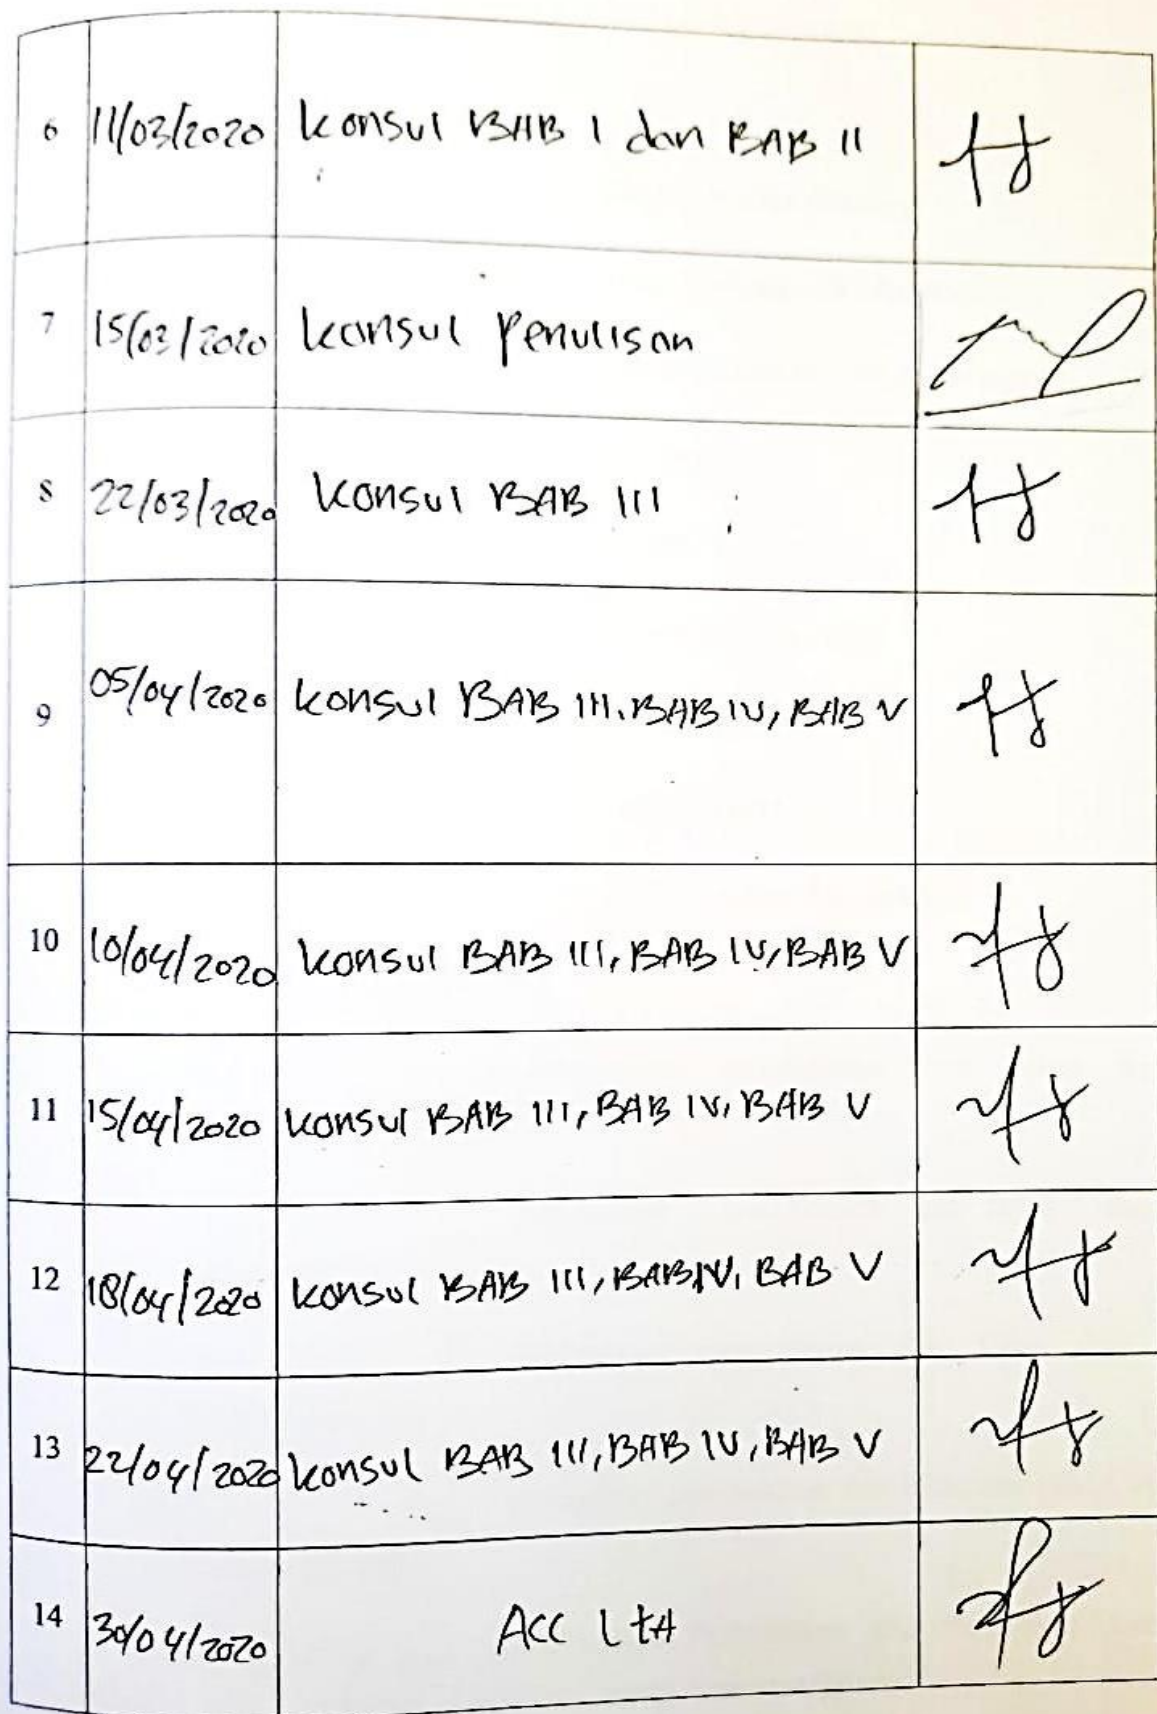 6 11/03/2020 konsul BAB I dan BAB II
7 15/03/2020 konsul Penulisan
8 22/03/2020 konsul BAB III
9 05/04/2020 konsul BAB III, BAB IV, BAB V
10 10/04/2020 konsul BAB III, BAB IV, BAB V
11 15/04/2020 konsul BAB III, BAB IV, BAB V
12 18/04/2020 konsul BAB III, BAB IV, BAB V
13 22/04/2020 konsul BAB III, BAB IV, BAB V
14 30/04/2020 ACC LTA